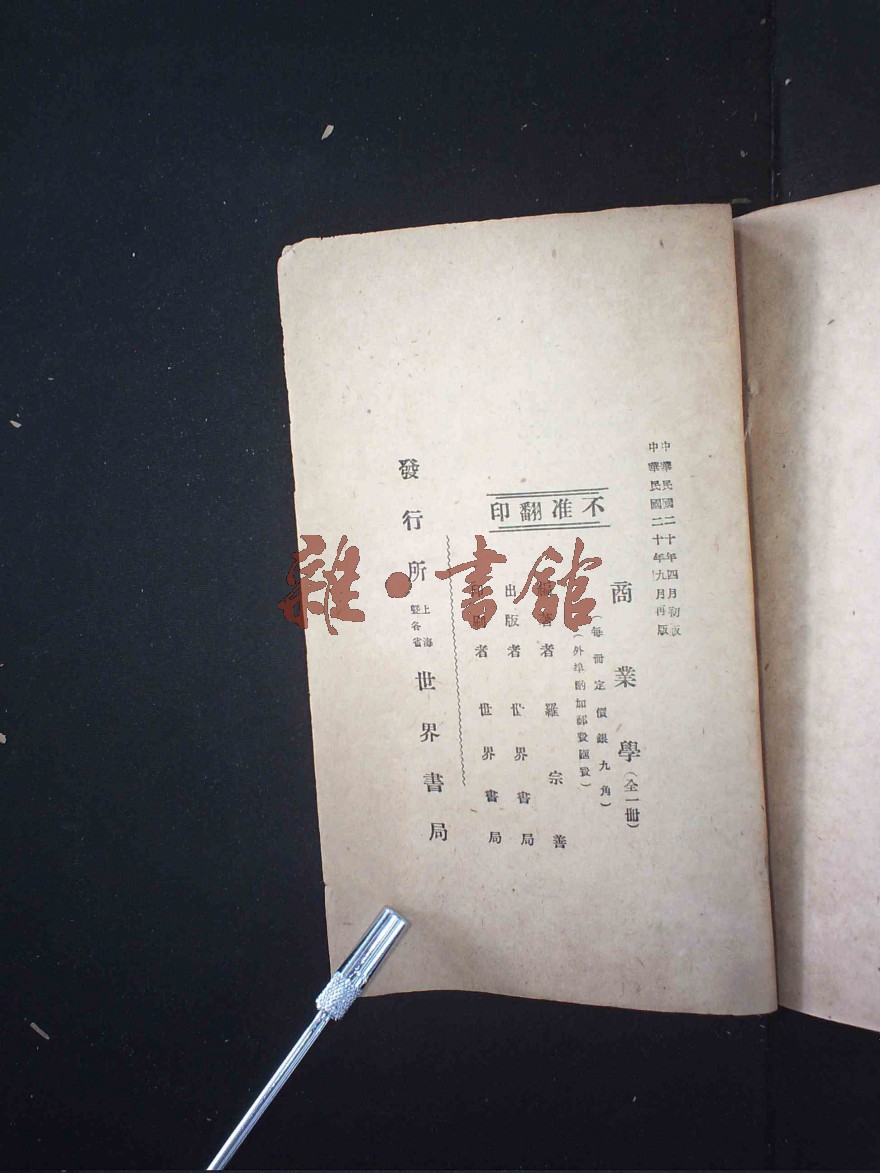 中華民國二十年四月初版
中華民國二十年九月再版
商業學(全一冊)
(每冊定價銀九角)
(外埠酌加郵費匯費)
不准翻印
編著者 羅宗善
出版者 世界書局
印刷者 世界書局
發行所 上海暨各省 世界書局
雜·書館